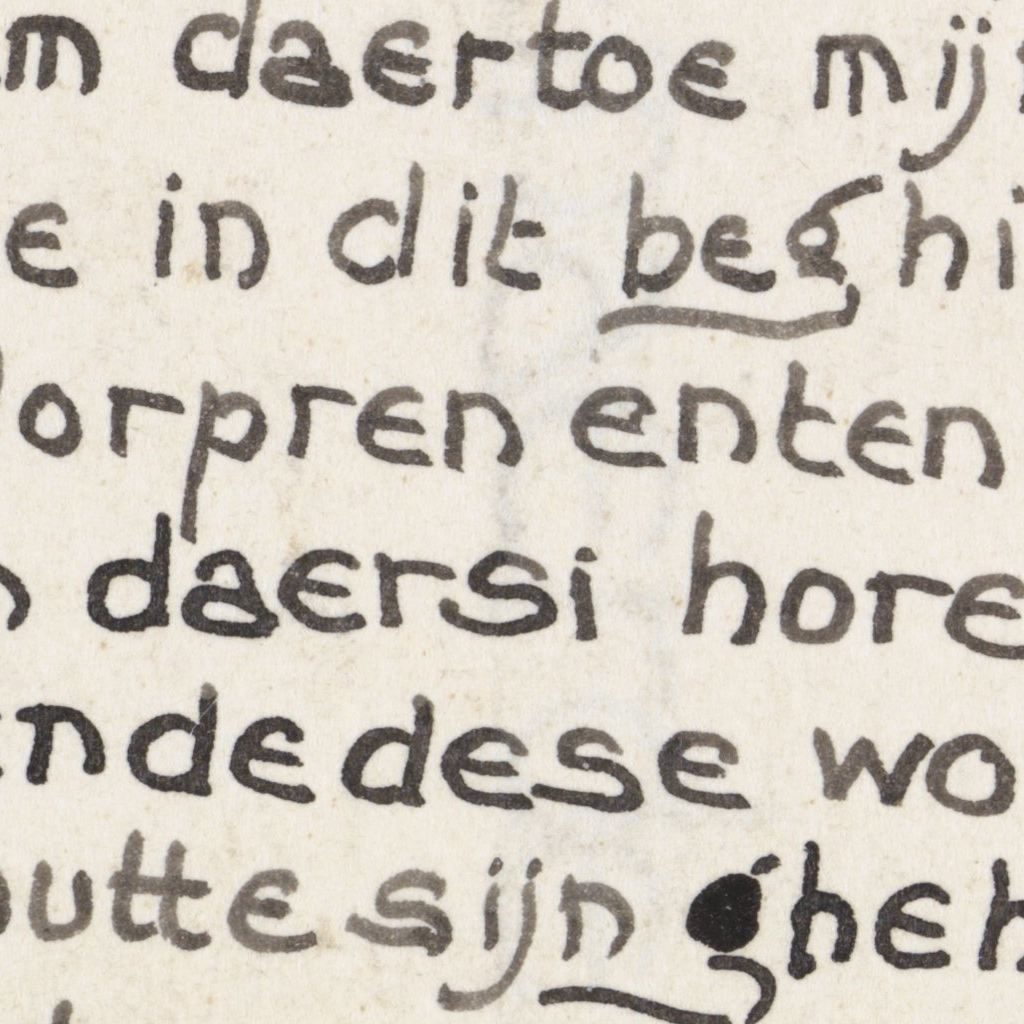 m daertoe mij
e in dit beghi
orpren enten
daersi hore
nde dese wo
utte sijn gheh